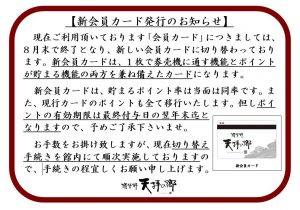 【新会員カード発行のお知らせ】
現在ご利用頂いております「会員カード」につきましては、
8月末で終了となり、新しい会員カードに切り替わっており
ます。新会員カードは、1枚で券売機に通す機能とポイント
が貯まる機能の両方を兼ね備えたカードになります。
新会員カードは、貯まるポイント率は当面は同率です。ま
た、現行カードのポイントも全て移行いたします。但しポイ
ントの有効期限は最終付与日の翌年末迄と
なりますので、予めご了承下さいませ。
お手数をお掛け致しますが、現在切り替え
手続きを館内にて順次実施しておりますの
で、手続きの程宜しくお願い申し上げます。
天拝の郷
新会員カード